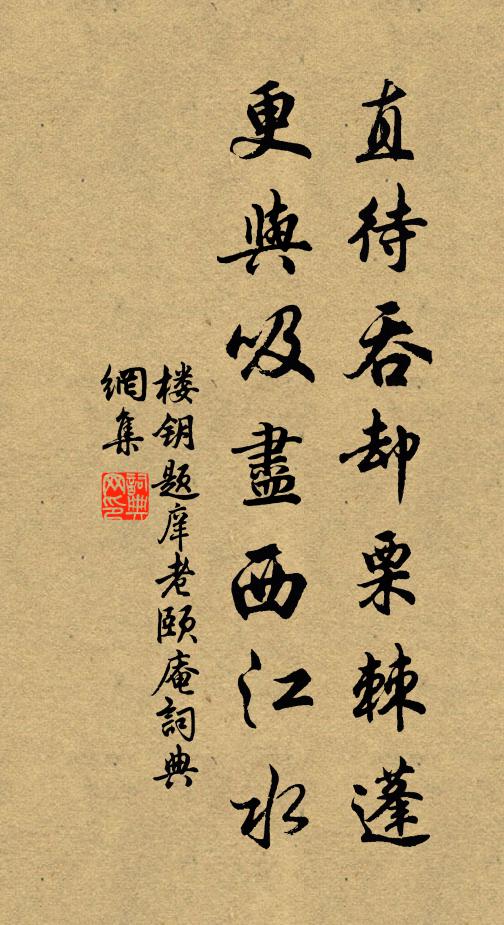 直待吞却栗棘蓬
更與吸盡西江水
楼钥题庠老颐庵詞典
網集
詞典網印